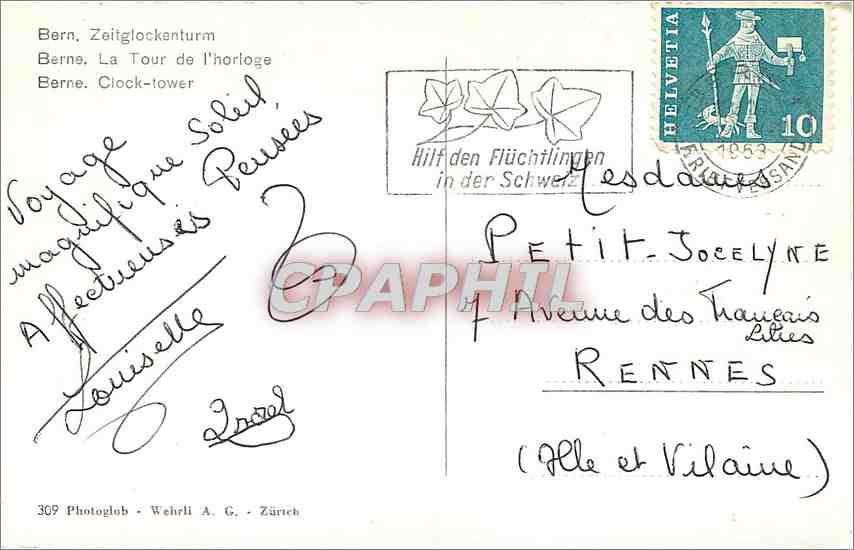 Bern, Zeitglockenturm
Berne, La Tour de l'horloge
Berne, Clock-tower
Voyage
magnifique Soleil,
Affectueuses Pensées
Louiselle
309 Photoglob - Wehrli A. G. - Zürich
Hilf den Flüchtlingen
in der Schweiz
HELVETIA
10
1963
Mesdames
PETIT-JOCELYNE
7 Avenue des Français
Libres
RENNES
(Ille et Vilaine)
CPAPHIL